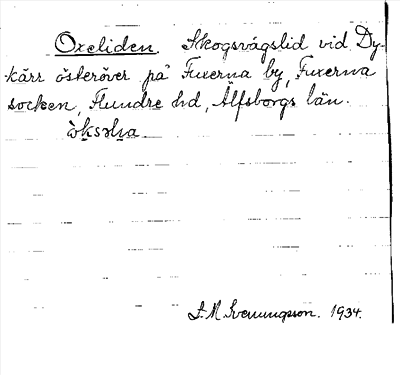 Oxeliden. Skogsvägslid vid Dy-
kärr österöver på Fuxerna by, Fuxerna
socken, Flundre hd, Älfsborgs län.
S. M. Svenungsson. 1934.